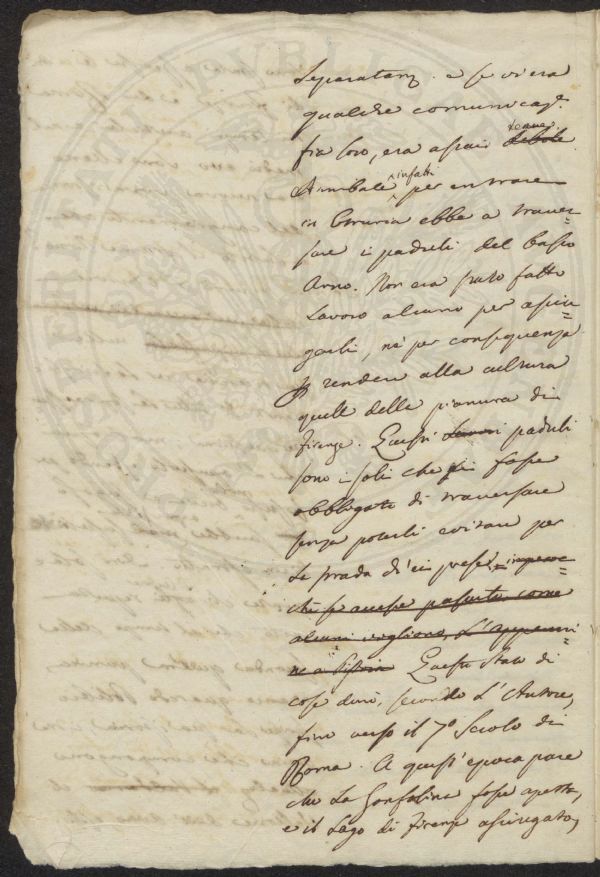 Separatam.e e se vi era
qualche comunicaz.e
fra loro, era assai debole
Annibale infatti per entrare
in Etruria ebbe a traver=
sare i paduli del basso
Arno. Non era stato fatto
Lavoro alcuno per asciu=
garli, nè per conseguenza
rendere alla cultura
quelli della pianura di
Firenze. Questi paduli
sono i soli che fosse
obbligato di traversare
senza poterli evitare per
La strada ch'ei prese, imperoc=
chè se avesse passato, come
alcuni vogliono, L'Appenni=
no a Pistoia Questo stato di
cose durò, secondo L'Autore,
fino verso il 7º Secolo di
Roma. A quest'epoca pare
che La Gonfolina fosse aperta,
e il Lago di Firenze asciugato,